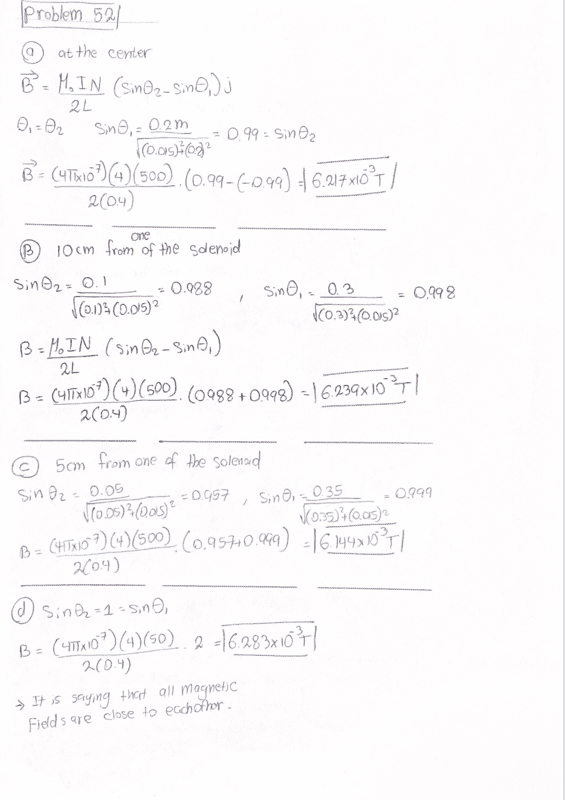 Problem 52
(a) at the center
B⃗ = M₀IN/2L (sinθ₂ - sinθ₁) j
θ₁ = θ₂ sinθ₁ = 0.2m/√(0.015)²+(0.2)² = 0.99 = sinθ₂
B⃗ = (4π×10⁻⁷)(4)(500)/2(0.4) · (0.99-(-0.99)) = |6.217×10⁻³T|
(B) 10cm from one of the solenoid
sinθ₂ = 0.1/√(0.1)²+(0.015)² = 0.988 , sinθ₁ = 0.3/√(0.3)²+(0.015)² = 0.998
B = M₀IN/2L (sinθ₂ - sinθ₁)
B = (4π×10⁻⁷)(4)(500)/2(0.4) · (0.988+0.998) = |6.239×10⁻³T|
(c) 5cm from one of the solenoid
sinθ₂ = 0.05/√(0.05)²+(0.015)² = 0.957 , sinθ₁ = 0.35/√(0.35)²+(0.015)² = 0.999
B = (4π×10⁻⁷)(4)(500)/2(0.4) · (0.957+0.999) = |6.144×10⁻³T|
(d) sinθ₂ = 1 = sinθ₁
B = (4π×10⁻⁷)(4)(50)/2(0.4) · 2 = |6.283×10⁻³T|
→ It is saying that all magnetic
Fields are close to eachother.